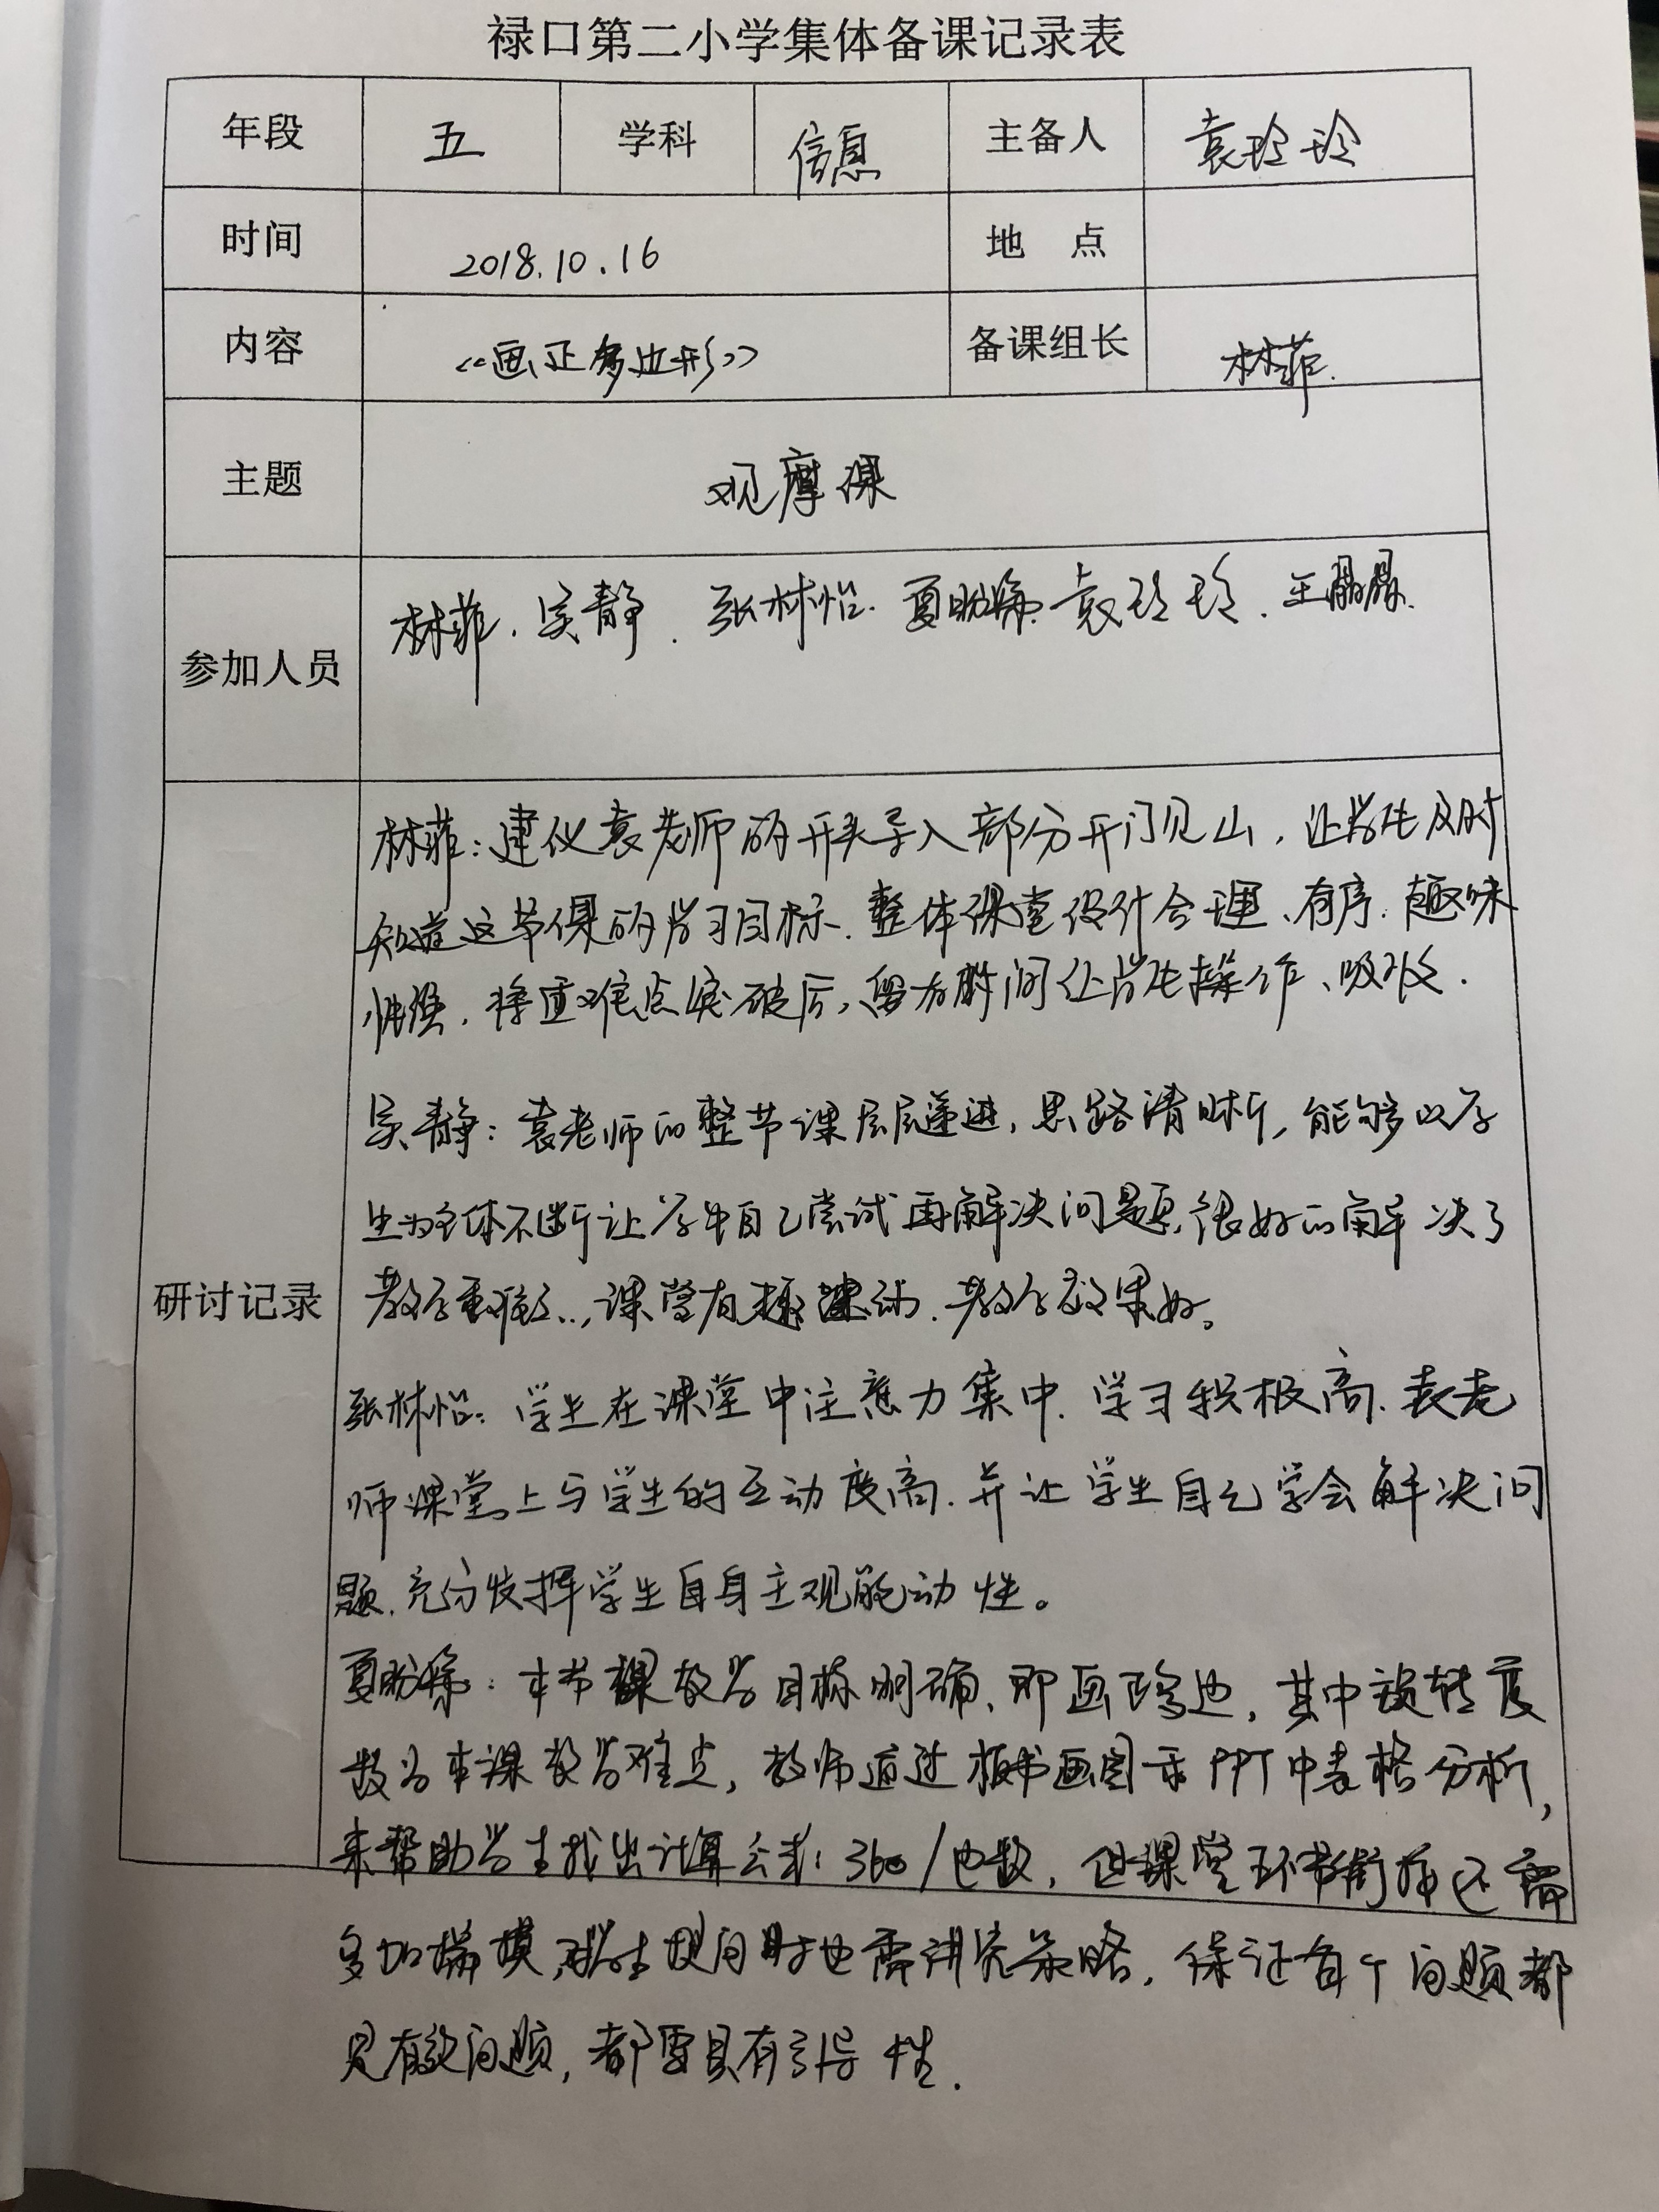 禄口第二小学集体备课记录表
年段 五 学科 信息 主备人 袁玲玲
时间 2018.10.16 地 点
内容 《画正多边形》 备课组长 林菲.
主题 观摩课
参加人员 林菲. 吴静. 张林怡. 夏盼 袁玲玲. 王晶晶.
研讨记录
林菲:建仪袁老师的开头导入部分开门见山,让学生及时
知道这节课的学习目标.整体课堂设计合理、有序.趣味
性强.将重难点突破后,留有时间让学生操作、吸收.
吴静:袁老师的整节课层层递进,思路清晰,能够以学
生为主体不断让学生自己尝试再解决问题,很好的解决了
教学重难点.,课堂有趣 教学效果好。
张林怡:学生在课堂中注意力集中.学习积极高.袁老
师课堂上与学生的互动度高.并让学生自己学会解决问
题.充分发挥学生自身主观能动性。
夏盼:本节课教学目标明确、即画 边,其中旋转度
数为本课教学难点,教师通过板书画图和PPT中表格分析,
来帮助学生找出计算公式:360/边数,但课堂环节衔接还需
多加揣摩,对学生提问时也需讲究策略,保证每个问题都
是有效问题,都要具有引导性.